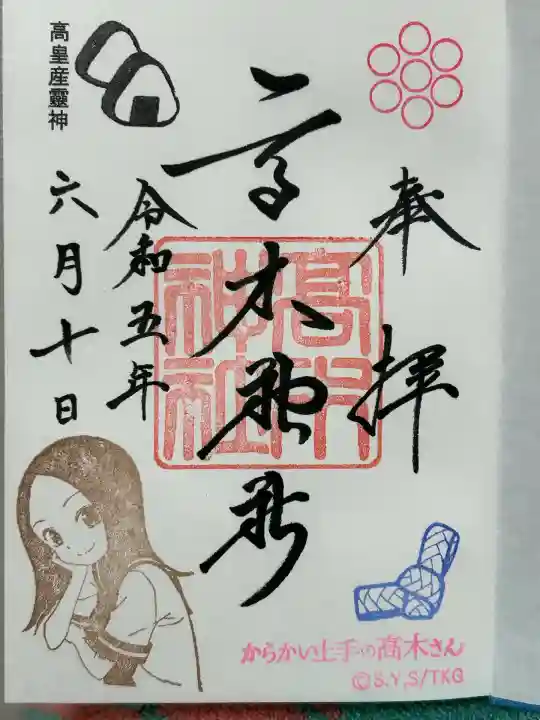 奉拝
高木神社
高木神社
令和五年
六月十日
高皇産靈神
からかい上手の高木さん
©S.Y,S/TKG